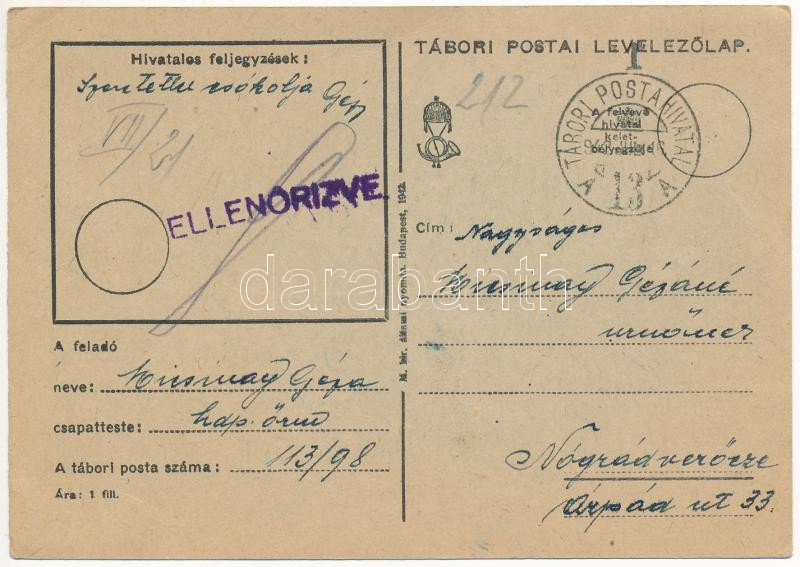 Hivatalos feljegyzések:
Szeretettel csókolja Géza
VII/21
ELLENORIZVE.
A feladó
neve: Micsinay Géza
csapatteste: hdp. őrm
A tábori posta száma: 113/98
Ára: 1 fill.
M. kir. állami nyomda, Budapest, 1942.
TÁBORI POSTAI LEVELEZŐLAP.
212
A felvevő
hivatal
kelet-
bélyegzője
TÁBORI POSTAHIVATAL
A 13 A
Cím: Nagyságos
Micsinay Gézáné
úrnőnek
Nógrádverőcze
Árpád út 33.
darabanth